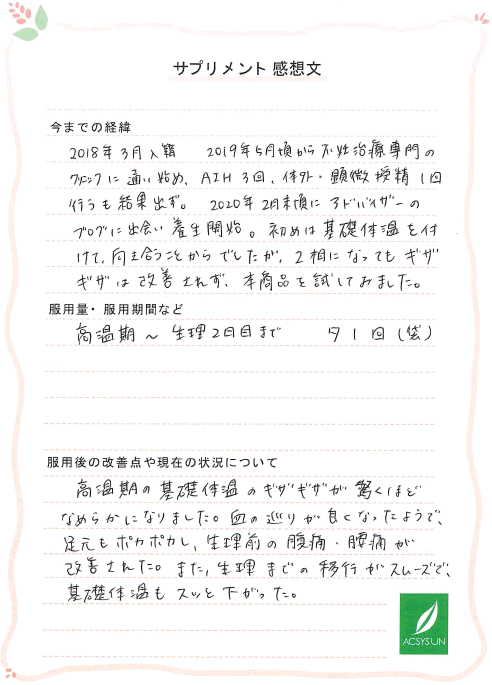 サプリメント 感想文
今までの経緯
2018年3月入籍　2019年5月頃から不妊治療専門の
クリニックに通い始め、AIH3回、体外・顕微授精1回
行うも結果出ず。2020年2月末頃にアドバイザーの
ブログに出会い養生開始。初めは基礎体温を付
けて、向き合うことからでしたが、2相になってもギザ
ギザは改善されず、本商品を試してみました。
服用量・服用期間など
高温期〜生理2日目まで　夕1回(袋)
服用後の改善点や現在の状況について
高温期の基礎体温のギザギザが驚くほど
なめらかになりました。血の巡りが良くなったようで、
足元もポカポカし、生理前の腹痛・腰痛が
改善された。また、生理までの移行がスムーズで、
基礎体温もスッと下がった。
ACSYSUN